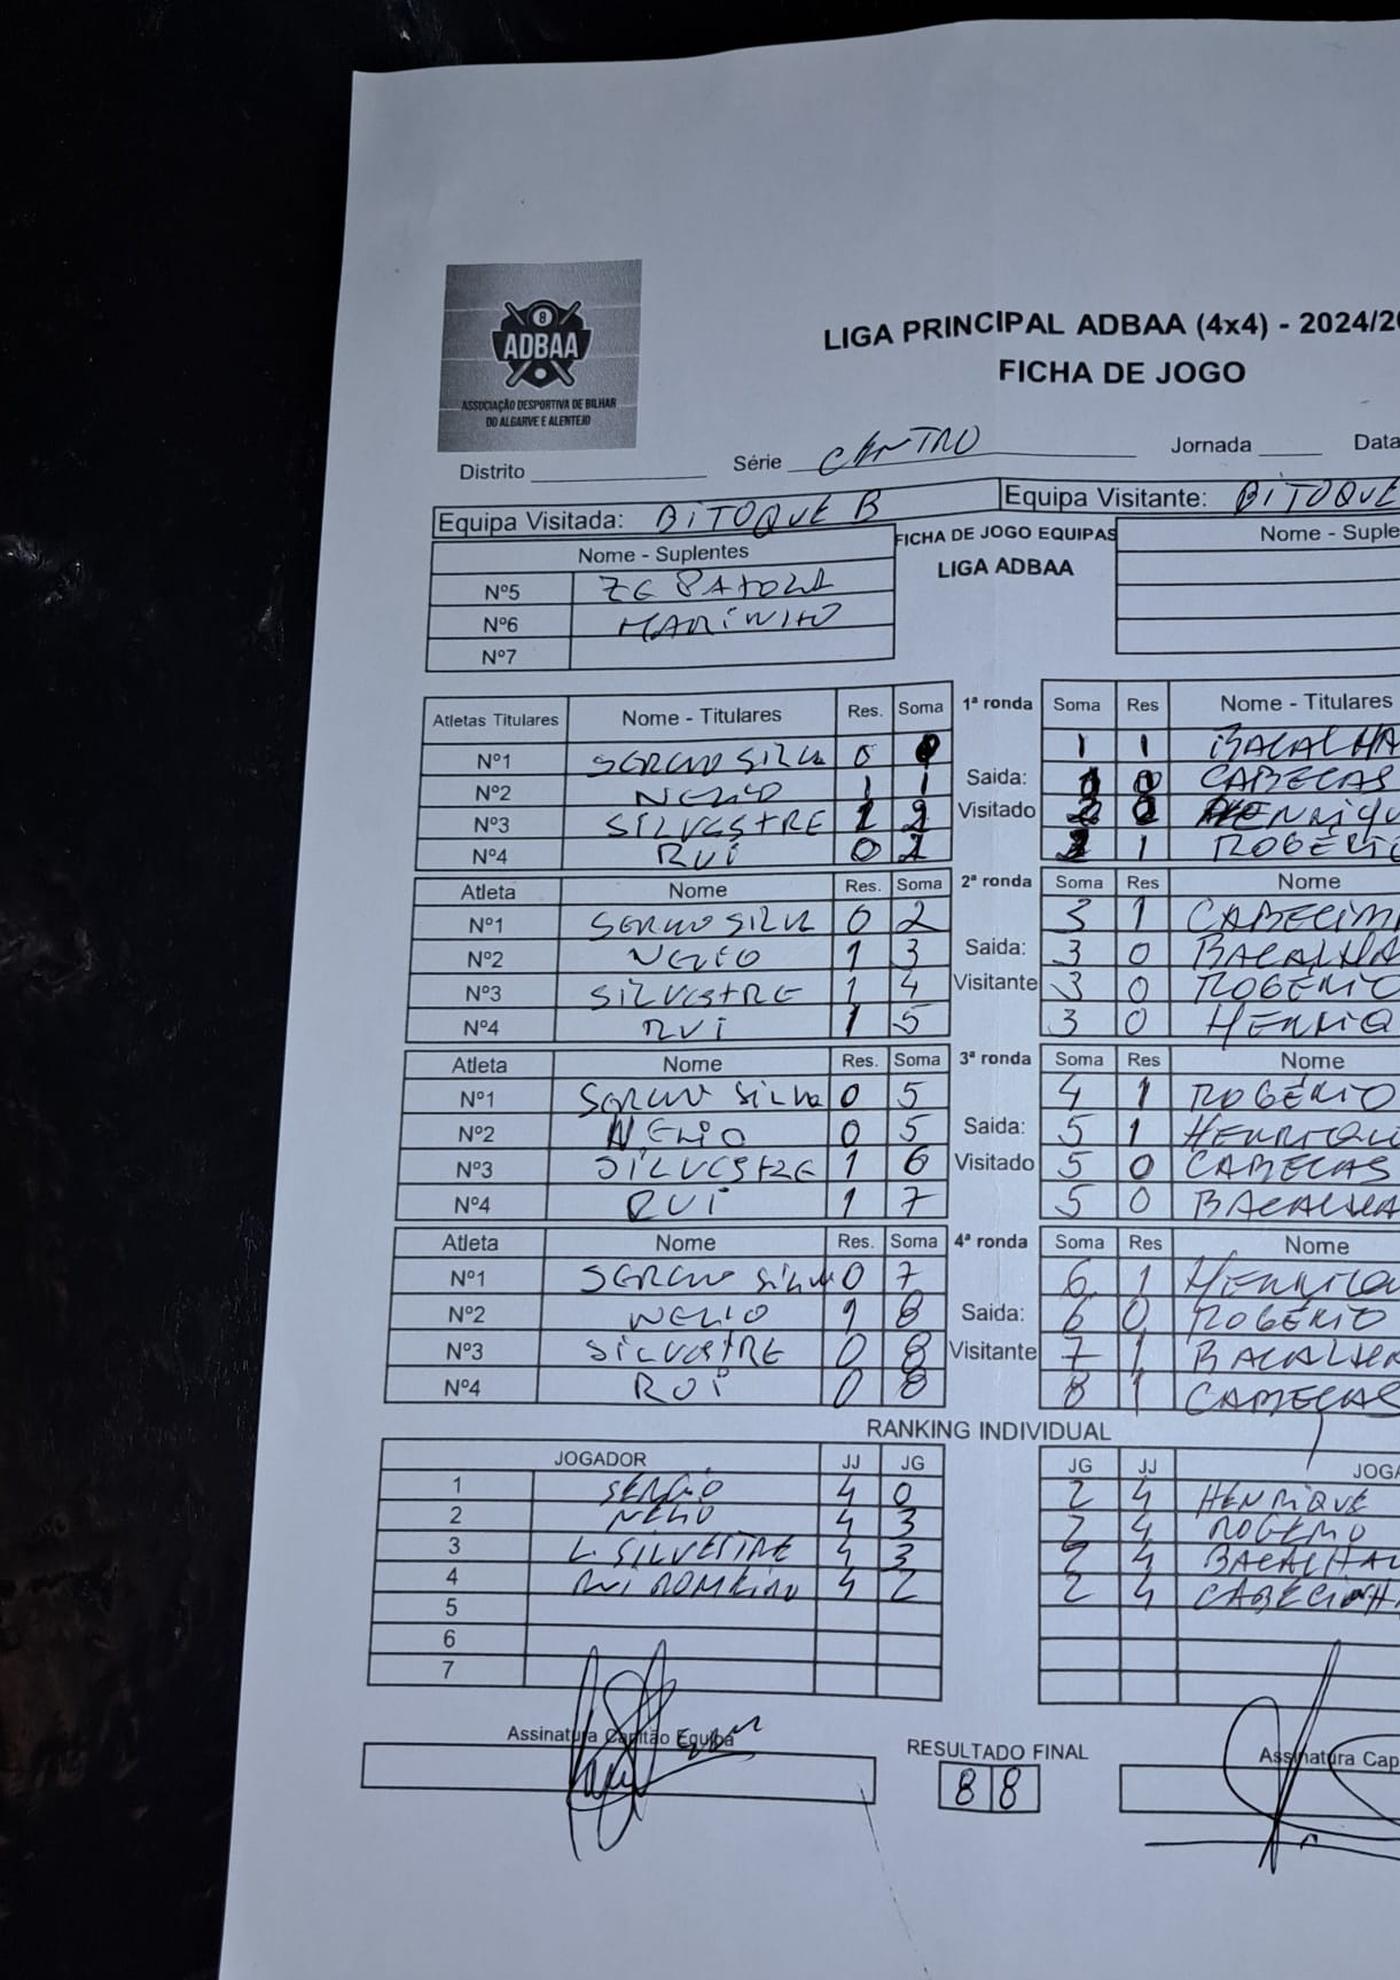 8
ADBAA
ASSOCIAÇÃO DESPORTIVA DE BILHAR
DO ALGARVE E ALENTEJO
LIGA PRINCIPAL ADBAA (4x4) - 2024/20
FICHA DE JOGO
Distrito Série CENTRO Jornada Data
Equipa Visitada: BITOQUE B Equipa Visitante: BITOQUE
Nome - Suplentes FICHA DE JOGO EQUIPAS Nome - Suple
LIGA ADBAA
Nº5 ZE BATOLA
Nº6 MARINHO
Nº7
Atletas Titulares Nome - Titulares Res. Soma 1ª ronda Soma Res Nome - Titulares
Nº1 SERGIO SILVA 0 1 1 BACALHA
Nº2 NELIO 1 1 Saida: 1 0 CABECAS
Nº3 SILVESTRE 1 2 Visitado 2 HENRIQU
Nº4 RUI 0 2 1 ROGERIO
Atleta Nome Res. Soma 2ª ronda Soma Res Nome
Nº1 SERGIO SILVA 0 2 3 1 CABECINH
Nº2 NELIO 1 3 Saida: 3 0 BACALHA
Nº3 SILVESTRE 1 4 Visitante 3 0 ROGÉRIO
Nº4 RUI 1 5 3 0 HENRIQ
Atleta Nome Res. Soma 3ª ronda Soma Res Nome
Nº1 SERGIO SILVA 0 5 4 1 ROGÉRIO
Nº2 NELIO 0 5 Saida: 5 1 HENRIQU
Nº3 SILVESTRE 1 6 Visitado 5 0 CABECAS
Nº4 RUI 1 7 5 0 BACALHA
Atleta Nome Res. Soma 4ª ronda Soma Res Nome
Nº1 SERGIO SILVA 0 7 6 1 HENRIQU
Nº2 NELIO 1 8 Saida: 6 0 ROGÉRIO
Nº3 SILVESTRE 0 8 Visitante 7 1 BACALHA
Nº4 RUI 0 8 8 1 CABECAS
RANKING INDIVIDUAL
JOGADOR JJ JG JG JJ JOGA
1 SÉRGIO 4 0 2 4 HENRIQUE
2 NELIO 4 3 2 4 ROGERIO
3 L. SILVESTRE 4 3 2 4 BACALHAU
4 RUI ROMEIRO 4 2 2 4 CABECINH
5
6
7
Assinatura Capitão Equipa RESULTADO FINAL Assinatura Cap
8 8